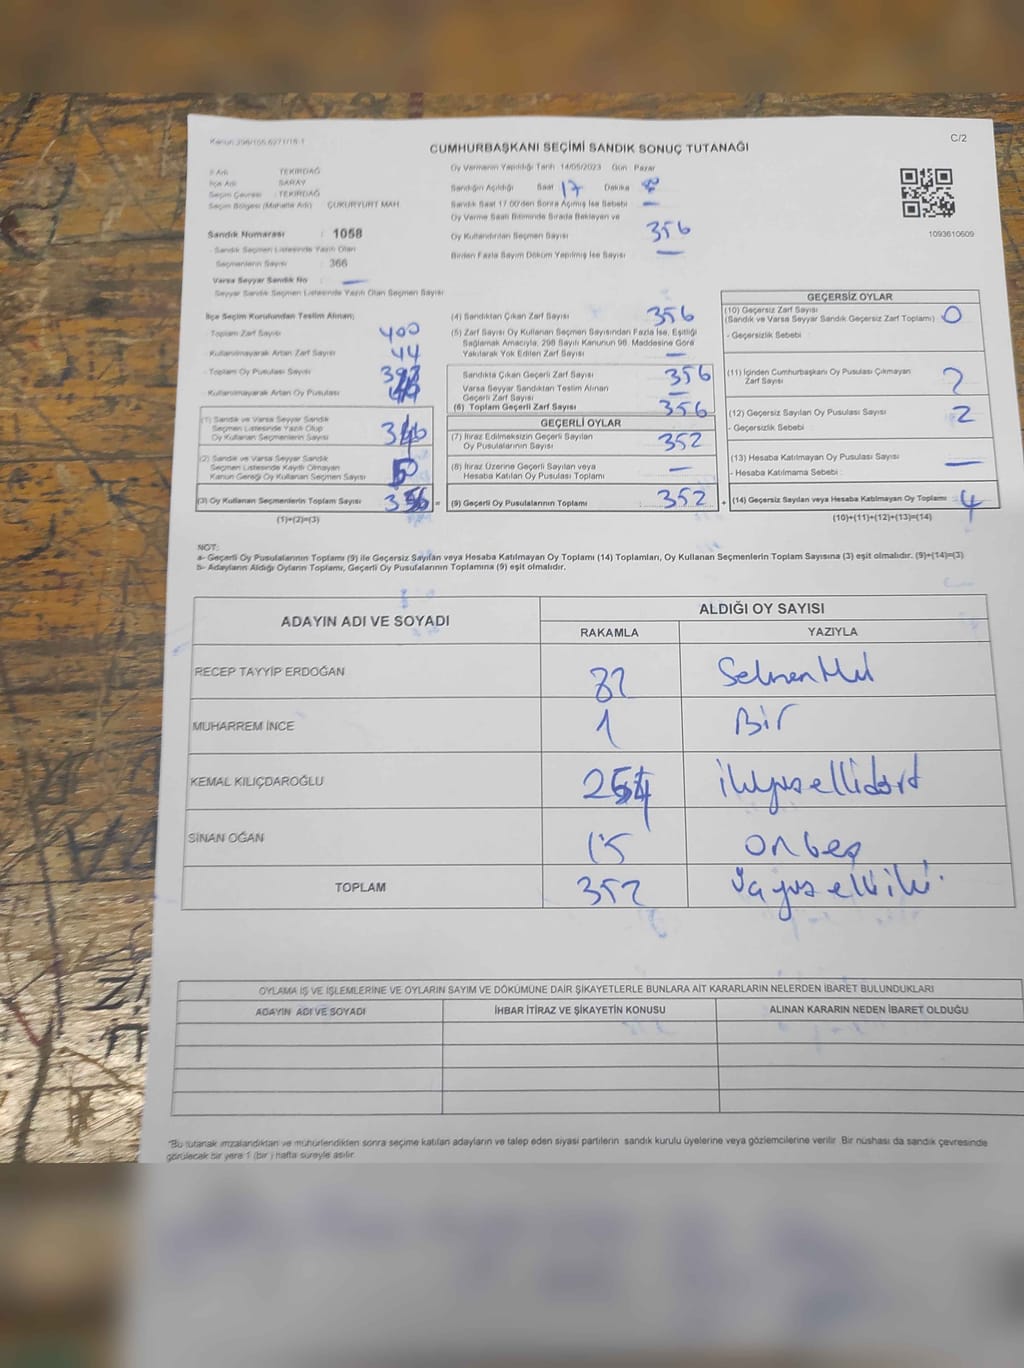 Kanun:298/105,6271/18-1
C/2
CUMHURBAŞKANI SEÇİMİ SANDIK SONUÇ TUTANAĞI
İl Adı : TEKİRDAĞ
İlçe Adı : SARAY
Seçim Çevresi : TEKİRDAĞ
Seçim Bölgesi (Mahalle Adı) : ÇUKURYURT MAH.
Sandık Numarası : 1058
Sandık Seçmen Listesinde Yazılı Olan
Seçmenlerin Sayısı : 366
Varsa Seyyar Sandık No : —
Seyyar Sandık Seçmen Listesinde Yazılı Olan Seçmen Sayısı
Oy Vermenin Yapıldığı Tarih 14/05/2023 Gün : Pazar
Sandığın Açıldığı Saat 17 Dakika
Sandık Saat 17.00'den Sonra Açılmış İse Sebebi —
Oy Verme Saati Bitiminde Sırada Bekleyen ve
Oy Kullandırılan Seçmen Sayısı 356
Birden Fazla Sayım Döküm Yapılmış İse Sayısı —
1093610609
İlçe Seçim Kurulundan Teslim Alınan;
Toplam Zarf Sayısı 400
Kullanılmayarak Artan Zarf Sayısı 44
Toplam Oy Pusulası Sayısı
Kullanılmayarak Artan Oy Pusulası
(1) Sandık ve Varsa Seyyar Sandık
Seçmen Listesinde Yazılı Olup
Oy Kullanan Seçmenlerin Sayısı
(2) Sandık ve Varsa Seyyar Sandık
Seçmen Listesinde Kayıtlı Olmayan
Kanun Gereği Oy Kullanan Seçmen Sayısı
(3) Oy Kullanan Seçmenlerin Toplam Sayısı 356 =
(1)+(2)=(3)
(4) Sandıktan Çıkan Zarf Sayısı 356
(5) Zarf Sayısı Oy Kullanan Seçmen Sayısından Fazla İse, Eşitliği
Sağlamak Amacıyla, 298 Sayılı Kanunun 98. Maddesine Göre
Yakılarak Yok Edilen Zarf Sayısı —
Sandıkta Çıkan Geçerli Zarf Sayısı 356
Varsa Seyyar Sandıktan Teslim Alınan
Geçerli Zarf Sayısı —
(6) Toplam Geçerli Zarf Sayısı 356
GEÇERLİ OYLAR
(7) İtiraz Edilmeksizin Geçerli Sayılan
Oy Pusulalarının Sayısı 352
(8) İtiraz Üzerine Geçerli Sayılan veya
Hesaba Katılan Oy Pusulası Toplamı —
(9) Geçerli Oy Pusulalarının Toplamı 352 +
GEÇERSİZ OYLAR
(10) Geçersiz Zarf Sayısı
(Sandık ve Varsa Seyyar Sandık Geçersiz Zarf Toplamı) 0
- Geçersizlik Sebebi :
(11) İçinden Cumhurbaşkanı Oy Pusulası Çıkmayan
Zarf Sayısı 2
(12) Geçersiz Sayılan Oy Pusulası Sayısı 2
- Geçersizlik Sebebi :
(13) Hesaba Katılmayan Oy Pusulası Sayısı —
- Hesaba Katılmama Sebebi :
(14) Geçersiz Sayılan veya Hesaba Katılmayan Oy Toplamı 4
(10)+(11)+(12)+(13)=(14)
NOT:
a- Geçerli Oy Pusulalarının Toplamı (9) ile Geçersiz Sayılan veya Hesaba Katılmayan Oy Toplamı (14) Toplamları, Oy Kullanan Seçmenlerin Toplam Sayısına (3) eşit olmalıdır. (9)+(14)=(3)
b- Adayların Aldığı Oyların Toplamı, Geçerli Oy Pusulalarının Toplamına (9) eşit olmalıdır.
ADAYIN ADI VE SOYADI
ALDIĞI OY SAYISI
RAKAMLA YAZIYLA
RECEP TAYYİP ERDOĞAN 82
MUHARREM İNCE 1 Bir
KEMAL KILIÇDAROĞLU 254 ikiyüzellidört
SİNAN OĞAN 15 onbeş
TOPLAM 352 üçyüzelliiki
OYLAMA İŞ VE İŞLEMLERİNE VE OYLARIN SAYIM VE DÖKÜMÜNE DAİR ŞİKAYETLERLE BUNLARA AİT KARARLARIN NELERDEN İBARET BULUNDUKLARI
ADAYIN ADI VE SOYADI İHBAR İTİRAZ VE ŞİKAYETİN KONUSU ALINAN KARARIN NEDEN İBARET OLDUĞU
*Bu tutanak imzalandıktan ve mühürlendikten sonra seçime katılan adayların ve talep eden siyasi partilerin sandık kurulu üyelerine veya gözlemcilerine verilir. Bir nüshası da sandık çevresinde
görülecek bir yere 1 (bir) hafta süreyle asılır.